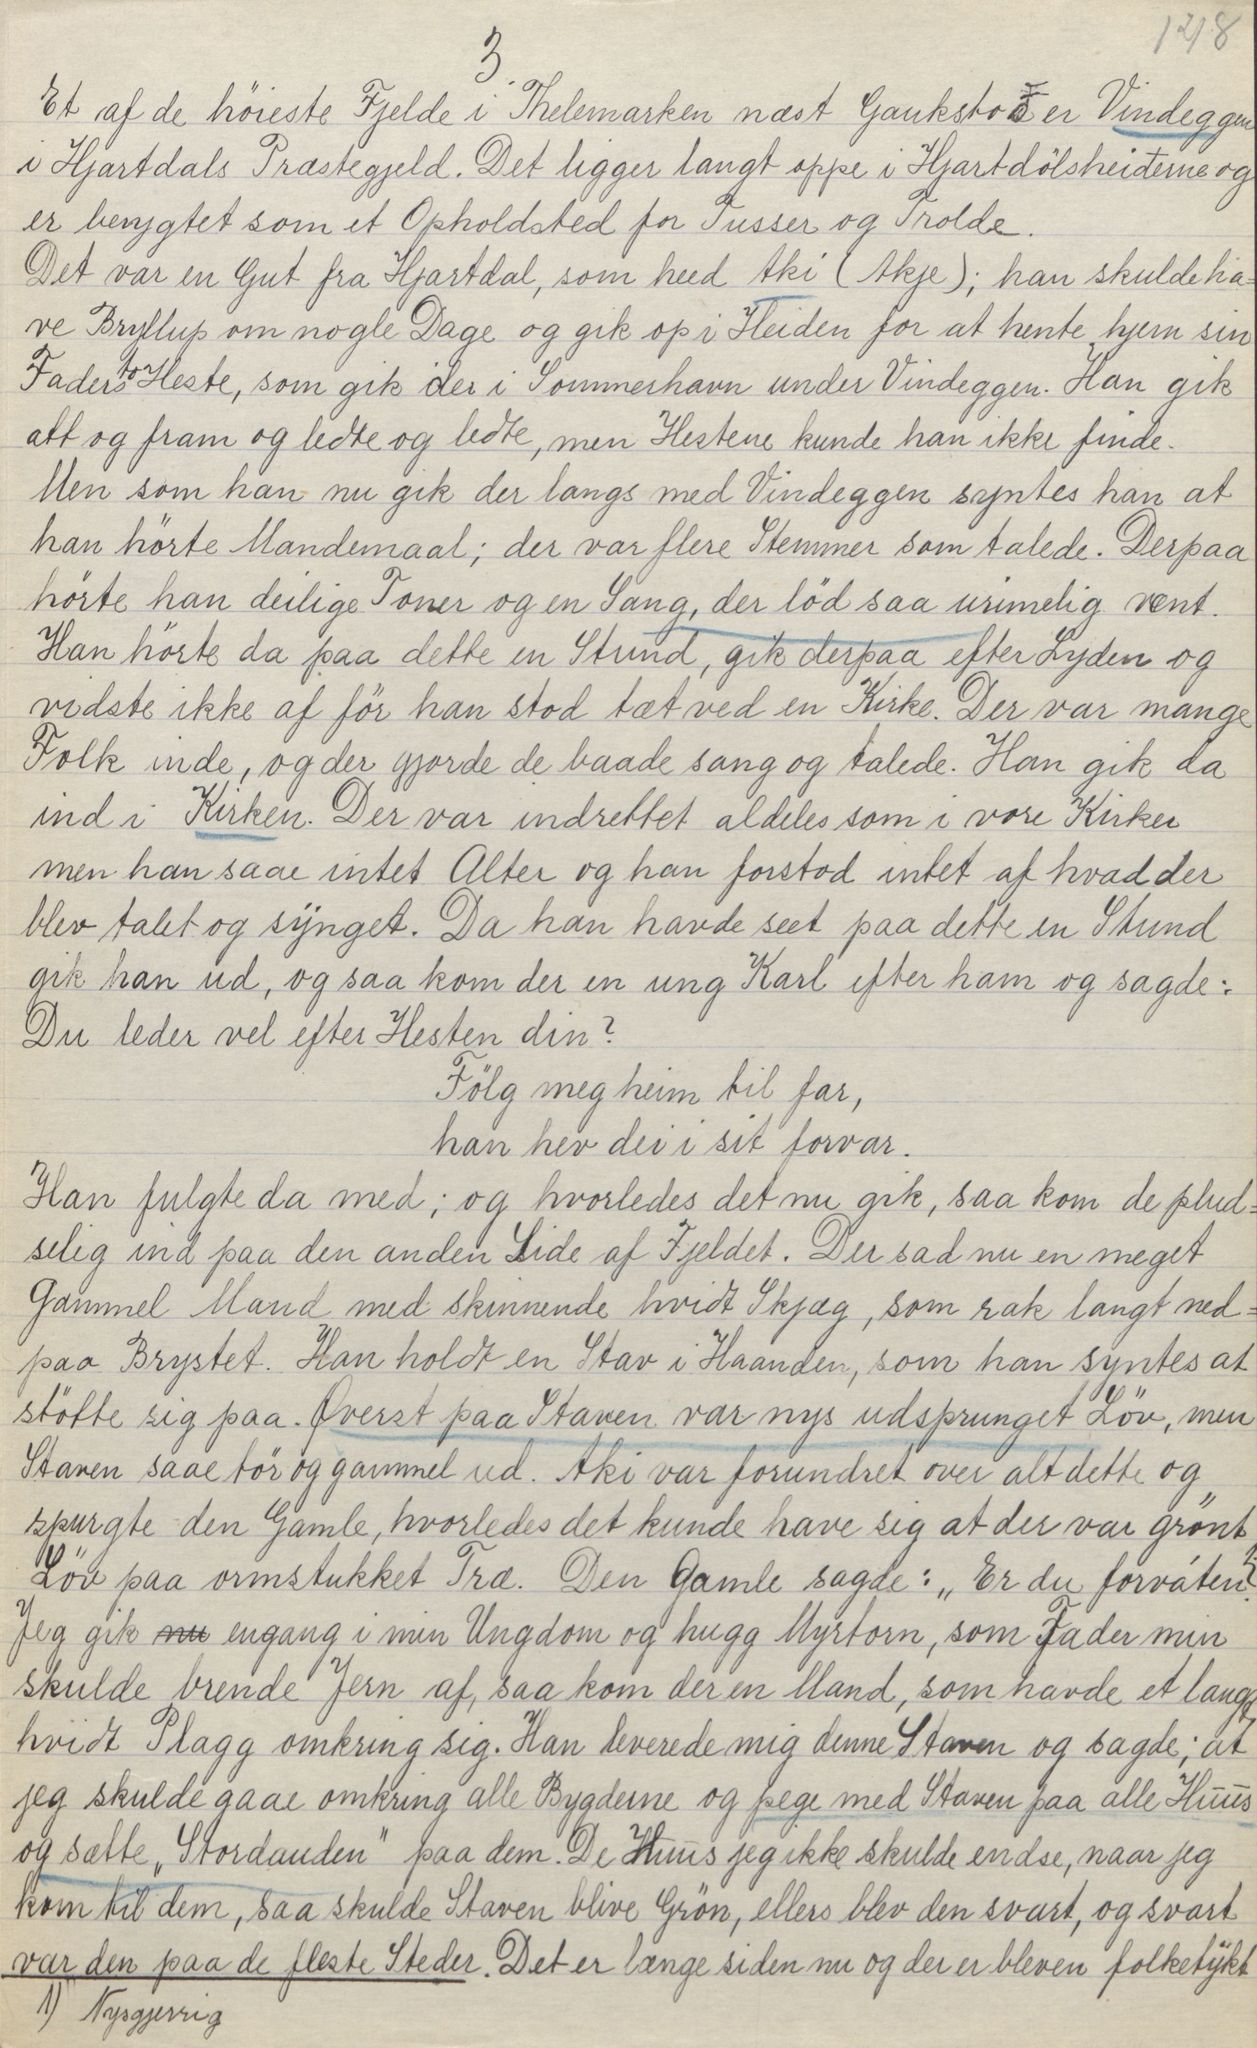 1218
3
Et af de höieste Fjelde i Thelemarken næst Gaukstos er Vindeggen
i Hjartdals Præstegjeld. Det ligger langt oppe i Hjartdölsheiderne og
er berygtet som et Opholdsted for Tusser og Trolde.
Det var en Gut fra Hjartdal, som heed Aki (Akje); han skulde ha-
ve Bryllup om nogle Dage og gik op i Heiden for at hente hjem sin
Faders to Heste, som gik der i Sommerhavn under Vindeggen. Han gik
att og fram og ledte og ledte, men Hestene kunde han ikke finde.
Men som han nu gik der langs med Vindeggen syntes han at
han hörte Mandemaal; der var flere Stemmer som talede. Derpaa
hörte han deilige Toner og en Sang, der löd saa urimelig vent.
Han hörte da paa dette en Stund, gik derpaa efter Lyden og
vidste ikke af för han stod tæt ved en Kirke. Der var mange
Folk inde, og der gjorde de baade sang og talede. Han gik da
ind i Kirken. Der var indrettet aldeles som i vore Kirker
men han saae intet Alter og han forstod intet af hvad der
blev talet og synget. Da han havde seet paa dette en Stund
gik han ud, og saa kom der en ung Karl efter ham og sagde:
Du leder vel efter Hesten din?
Fölg meg heim til far,
han hev dei i sit forvar.
Han fulgte da med; og hvorledes det nu gik, saa kom de plud=
selig ind paa den anden Side af Fjeldet. Der sad nu en meget
Gammel Mand med skinnende hvidt Skjæg, som rak langt ned=
paa Brystet. Han holdt en Stav i Haanden, som han syntes at
stötte sig paa. Øverst paa Staven var nys udsprunget Löv, men
Staven saae tör og gammel ud. Aki var forundret over alt dette og
spurgte den Gamle, hvorledes det kunde have sig at der var grönt
Löv paa ormstukket Træ. Den Gamle sagde: „Er du forváten?
Jeg gik nu engang i min Ungdom og hugg Myrtorn, som Fader min
skulde brende Jern af, saa kom der en Mand, som havde et langt
hvidt Plagg omkring sig. Han leverede mig denne Staven og sagde; at
jeg skulde gaae omkring alle Bygderne og pege med Staven paa alle Huus
og sætte „Stordauden" paa dem. De Huus jeg ikke skulde endse, naar jeg
kom til dem, saa skulde Staven blive Grön, ellers blev den svart, og svart
var den paa de fleste Steder. Det er længe siden nu og der er bleven folketykt
1) Nysgjerrig